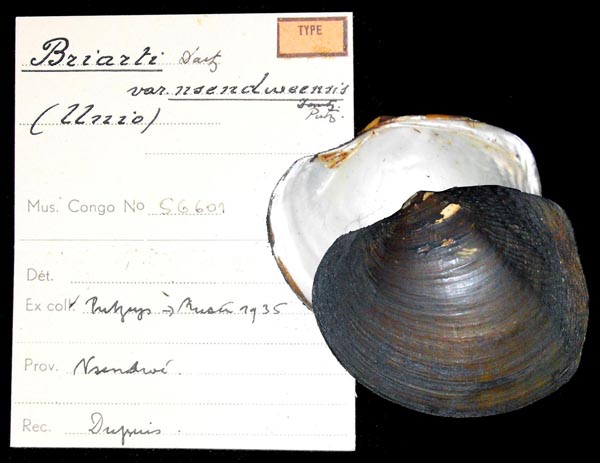 TYPE
Briarti Dautz
var. nsendweensis
Dautz.
Putz.
(Unio)
Mus. Congo No 56601
Dét.
Ex coll. Putzeys → Musée 1935
Prov. Nsendwé.
Rec. Dupuis.